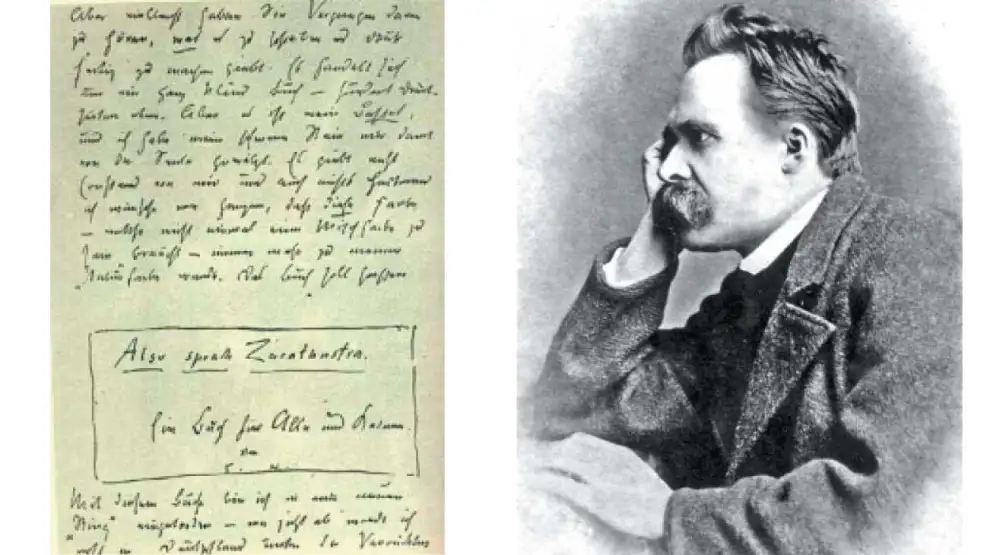 Aber vielleicht haben Sie Vergnügen daran
zu hören, was es zu schreiben und druck-
fertig zu machen giebt. Es handelt sich
um ein ganz kleines Buch — hundert Druck-
seiten etwa. Aber es ist mein Bestes,
und ich habe einen schweren Stein mir damit
von der Seele gewälzt. Es giebt nichts
Ernsteres von mir und auch nichts Heitereres
ich wünsche von Herzen, daß diese Farbe
— welche nicht einmal eine Mischfarbe zu
sein braucht — immer mehr zu meiner
"Natur"farbe werde. Das Buch soll heißen
Also sprach Zarathustra.
Ein Buch für Alle und Keinen.
Von
Mit diesem Buche bin ich in einen neuen
"Ring" eingetreten — von jetzt ab werde ich
wohl in Deutschland unter die Verrückten